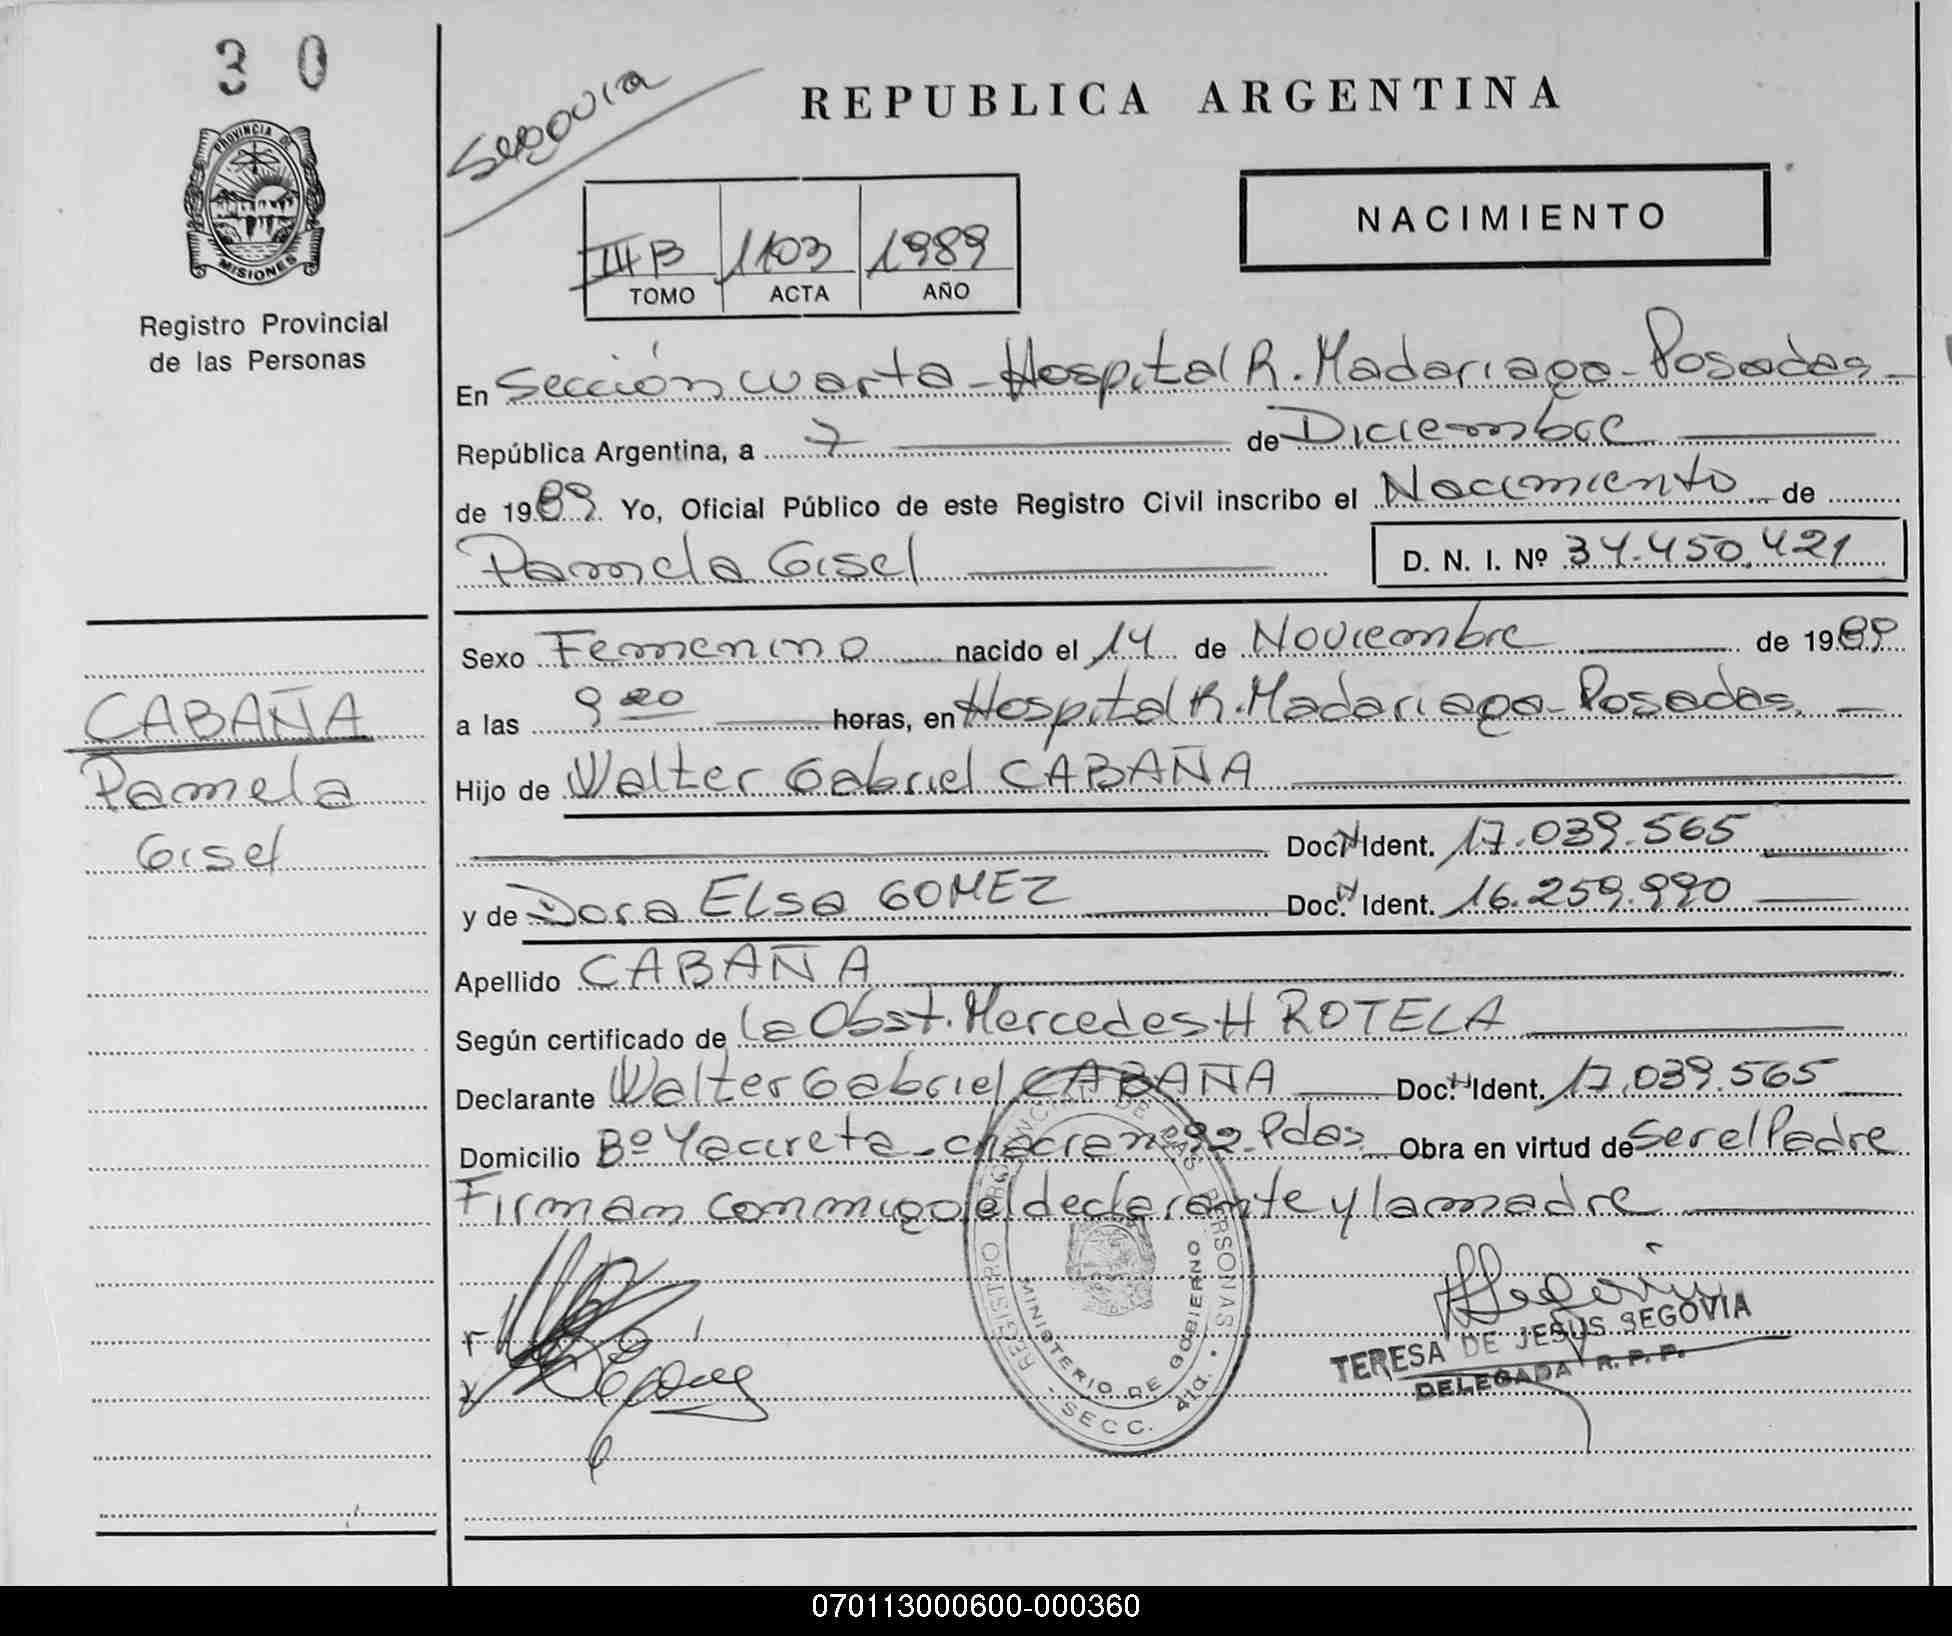 30
PROVINCIA DE
MISIONES
Registro Provincial
de las Personas
CABAÑA
Pamela
Gisel
Segovia
REPUBLICA ARGENTINA
NACIMIENTO
III B 1103 1989
TOMO ACTA AÑO
En Sección cuarta - Hospital R. Madariaga - Posadas -
República Argentina, a 7 de Diciembre
de 1989. Yo, Oficial Público de este Registro Civil inscribo el Nacimiento de
Pamela Gisel D. N. I. Nº 34.450.421
Sexo Femenino nacido el 14 de Noviembre de 1989
a las 9 20 horas, en Hospital R. Madariaga - Posadas. -
Hijo de Walter Gabriel CABAÑA
Doc. N Ident. 17.039.565
y de Dora Elsa GOMEZ Doc. N Ident. 16.259.990
Apellido CABAÑA
Según certificado de la Obst. Mercedes H ROTELA
Declarante Walter Gabriel CABAÑA Doc. N Ident. 17.039.565
Domicilio Bº Yacireta - chacra nº 92 - Pdas. Obra en virtud de Ser el Padre
Firman conmigo el declarante y la madre
REGISTRO PROVINCIAL DE LAS PERSONAS
MINISTERIO DE GOBIERNO
SECC. 4ta.
TERESA DE JESUS SEGOVIA
DELEGADA R. P. P.
070113000600-000360